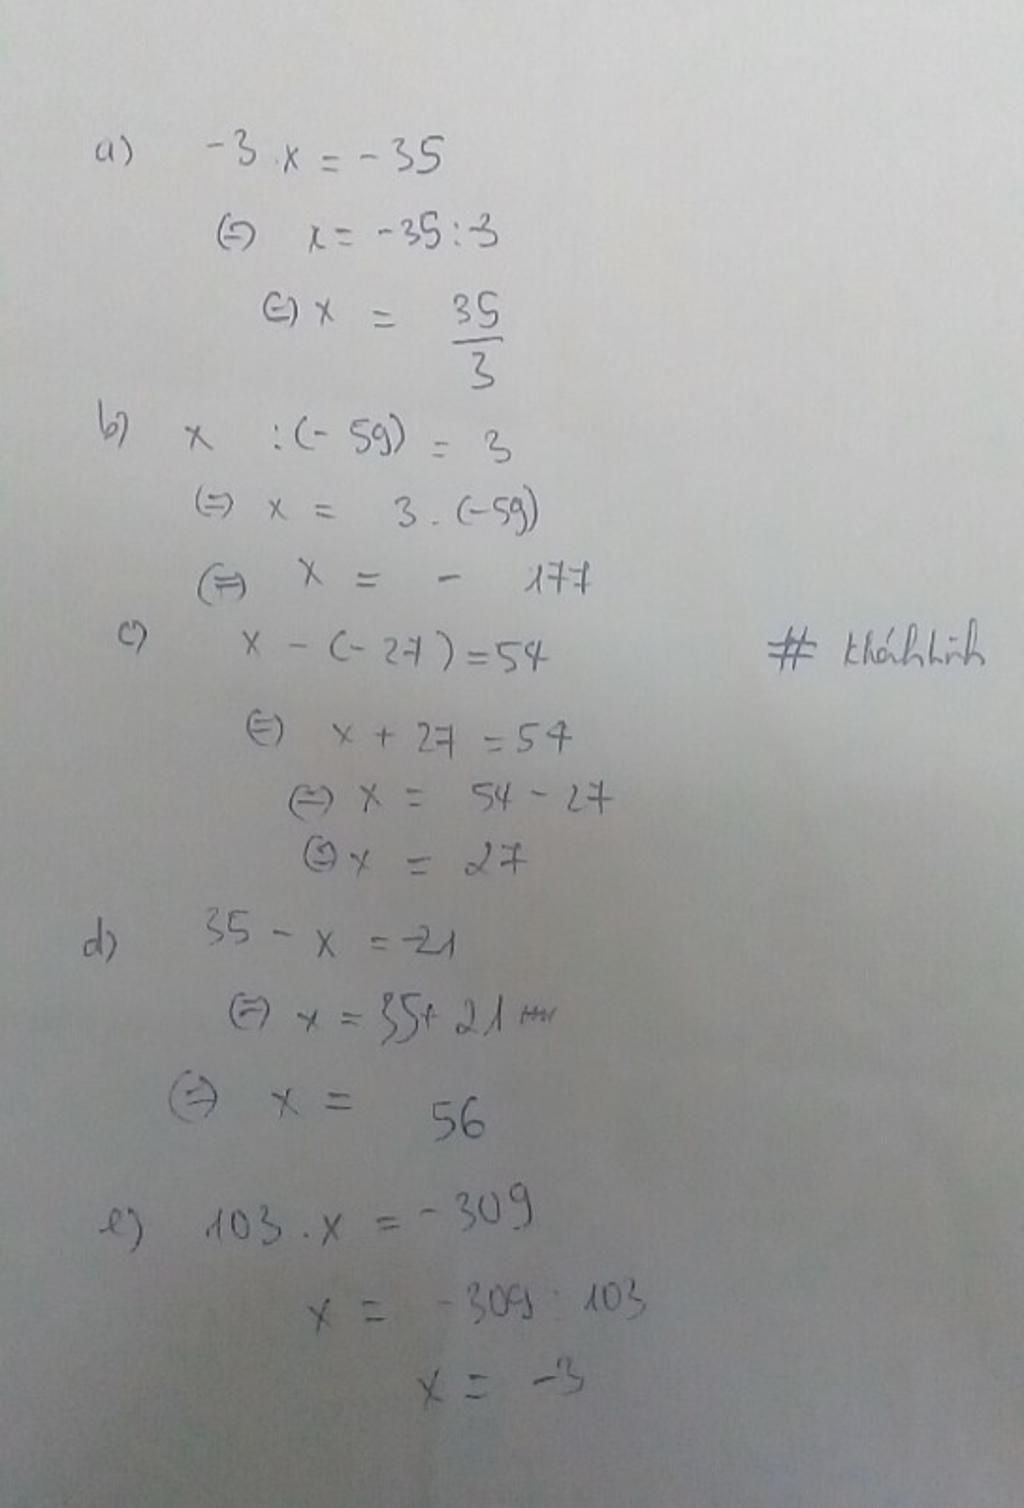 a) -3 . x = -35
(=) x = -35 : -3
(=) x = 35/3
b) x : (- 59) = 3
(=) x = 3 . (-59)
(=) x = - 177
c) x - (- 27) = 54
# khánhlinh
(=) x + 27 = 54
(=) x = 54 - 27
(=) x = 27
d) 35 - x = -21
(=) x = 35 + 21
(=) x = 56
e) 103 . x = -309
x = -309 : 103
x = -3